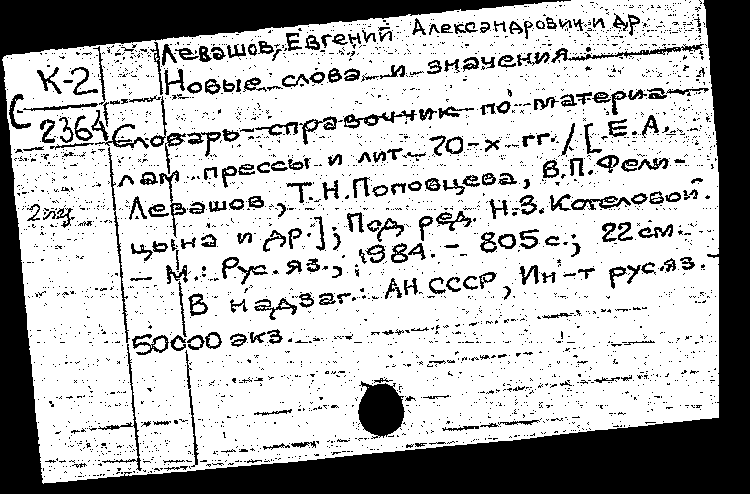 Левашов, Евгений Александрович и др.
К-2
С 2364
Новые слова и значения:
Словарь-справочник по материа-
лам прессы и лит. 70-х гг. / [Е.А.
Левашов, Т.Н.Поповцева, В.П.Фели-
цына и др.]; Под ред. Н.З.Котеловой.
- М.: Рус.яз., 1984. - 805с.; 22см.
В надзаг.: АН СССР, Ин-т рус.яз. -
50000 экз.
2 экз